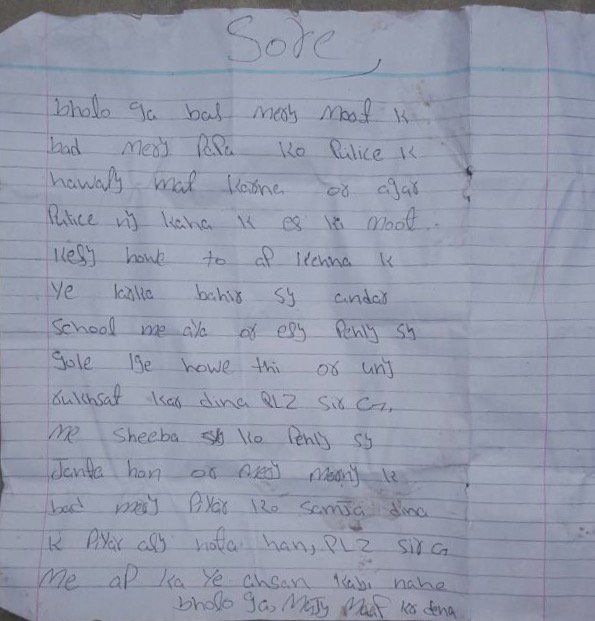 Sore
bholo ga bas merj moot k
bad merj PaPa ko Pulice k
hawaly mat karna or agar
Pulice nj kaha k es ki moot
kesy howe to aP kehna k
Ye larka bahir sy andar
school me aya or esy Pehly sy
gole lge howe thi or unj
rukhsat kar dina PLZ sir G,
Me sheeba ko Pehly sy
Janta han or merj marnj k
bad merj Piyar ko samja dina
k Piyar asy hota han, PLZ sir G
Me aP ka Ye ahsan kabi nahe
bholo ga, Merjy Maaf kr dena